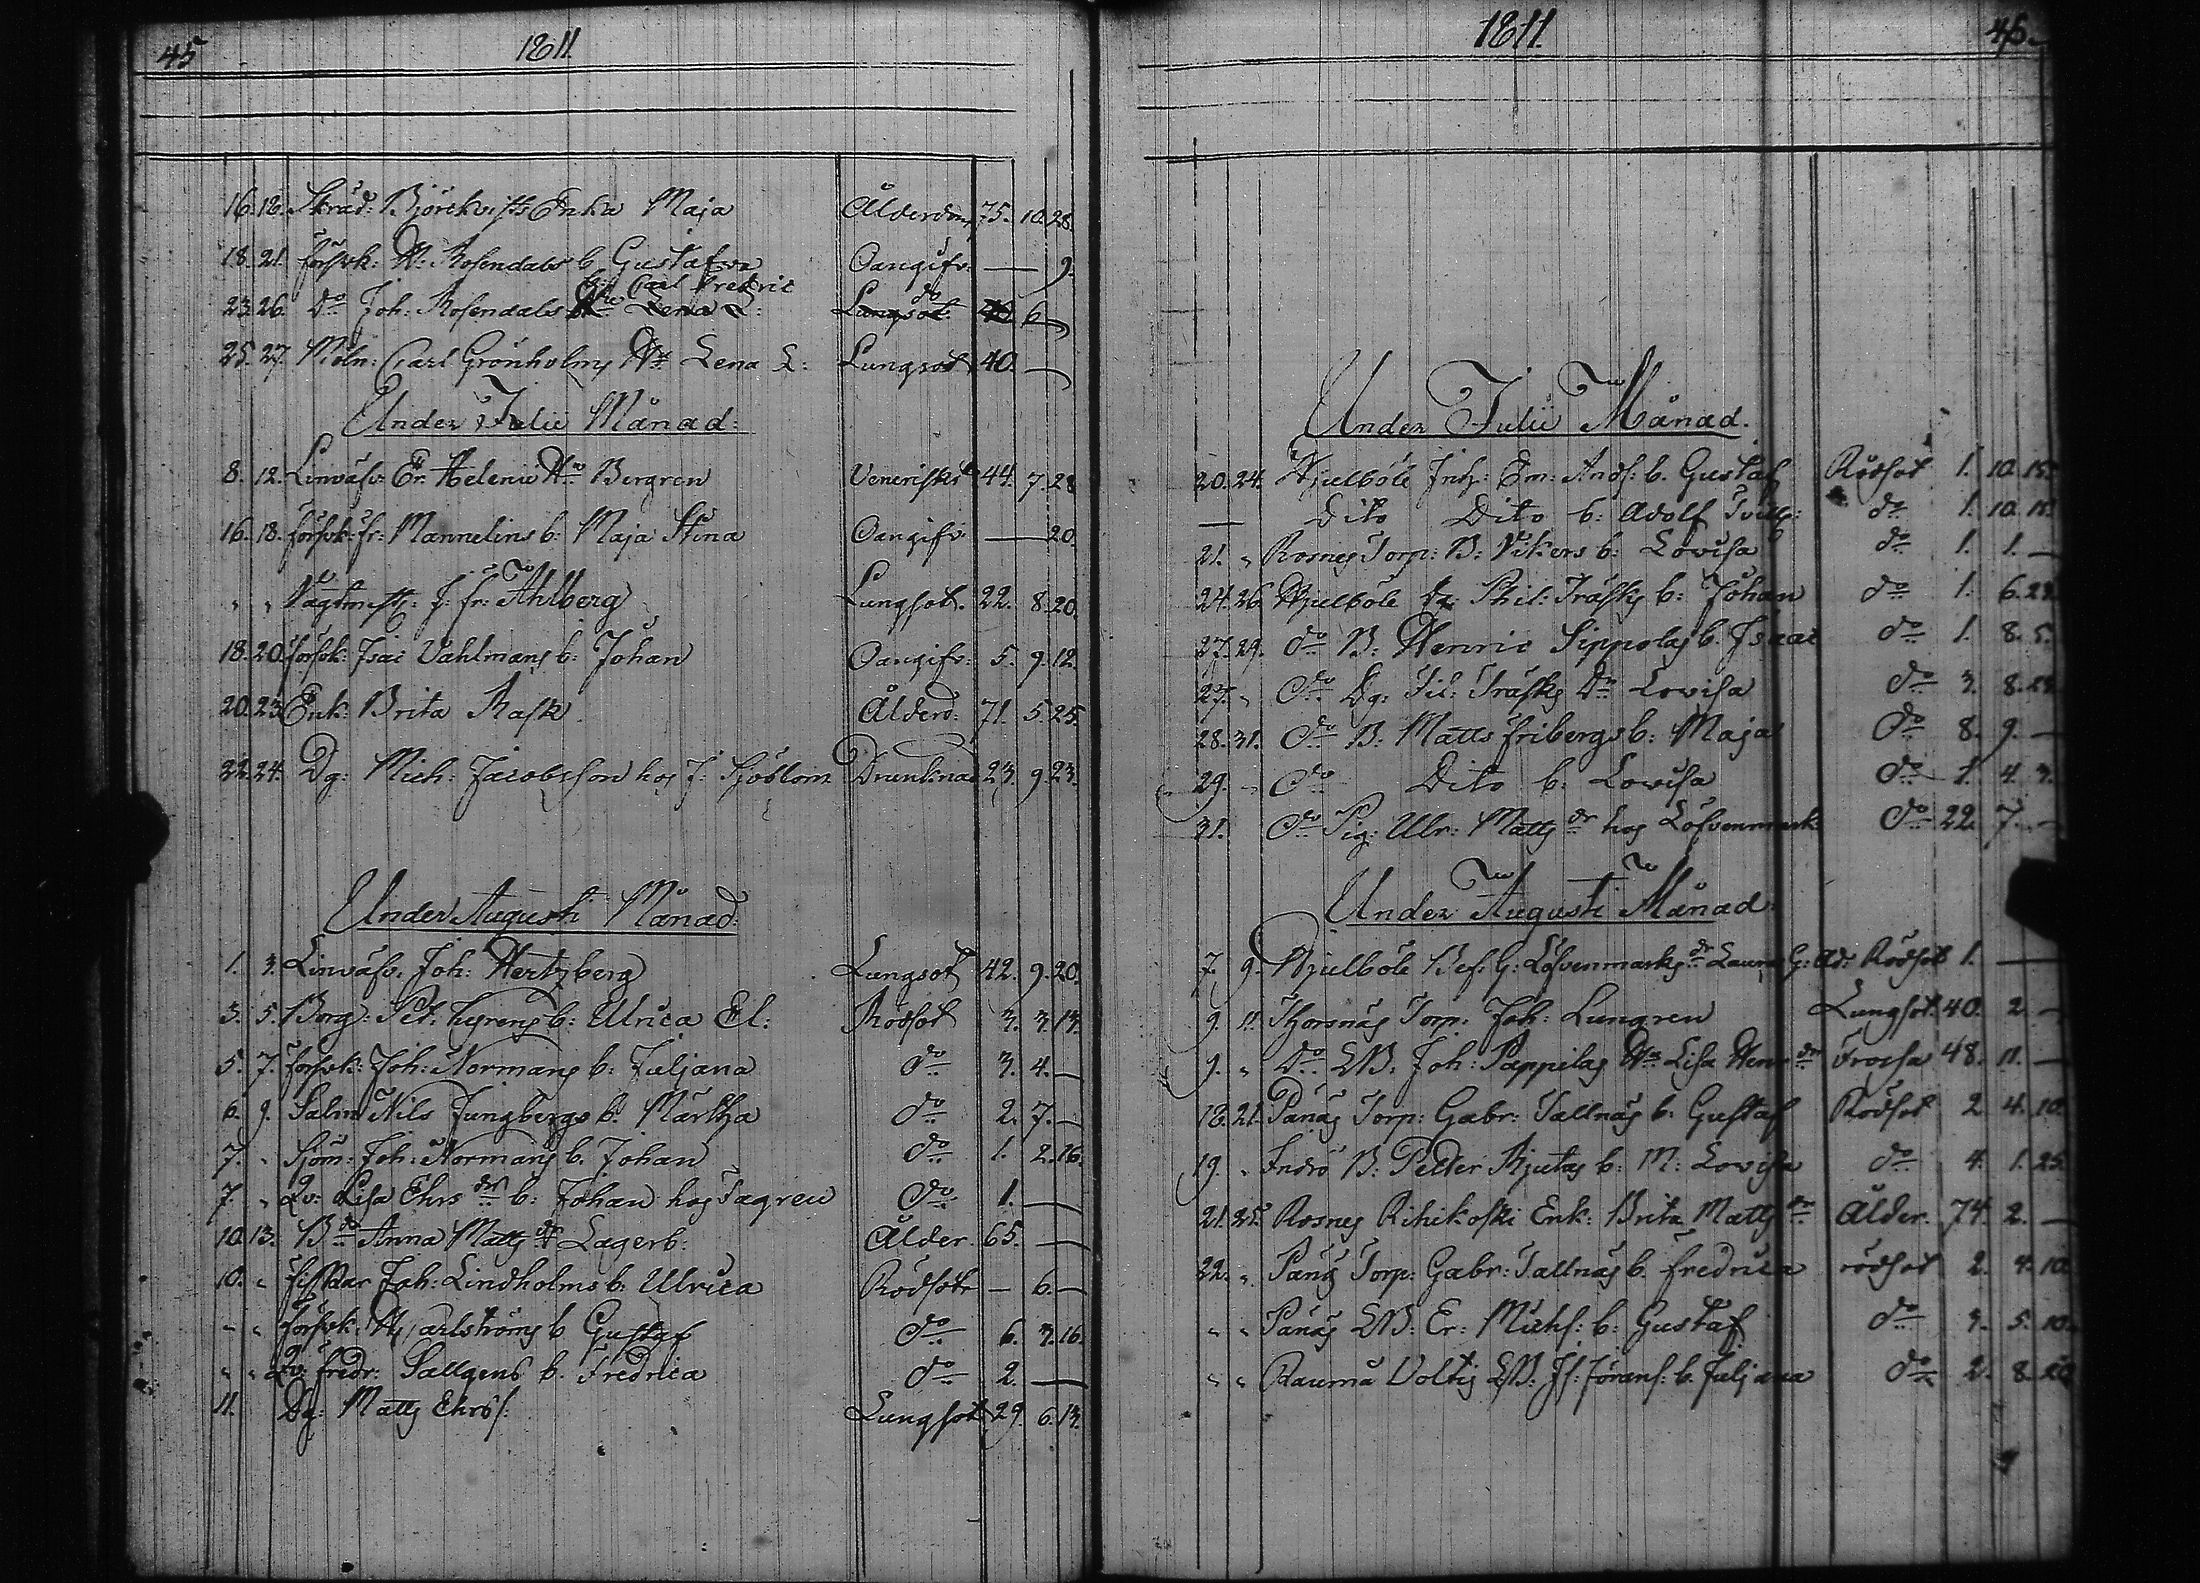 45 1811.
16. 18. Skräd: Björckvists Enka Maja Ålderdom 75. 10. 28.
18. 21. försvk: W. Rosendals b. Gustafva Oangifv: — 9.
b: Carl Fredric do
23. 26. Do Joh: Rosendals Hu Lena L: Lungsot 6. —
25. 27. Möln: Carl Grönholms Hu Lena L: Lungsot 40. —
Under Julii Månad:
8. 12. Linväfv. Er. Helenii Hu Bergren Veneriska 44. 7. 28
16. 18. försvk: fr: Mannelins b: Maja Stina Oangifv — 20.
" " Vagtmst: J: fr: Ahlberg Lungsot. 22. 8. 20.
18. 20. försvk: Isac Vahlmans b: Johan Oangifv: 5. 9. 12.
20. 23. Enk: Brita Rask Ålderd: 71. 5. 25.
22. 24. Dg: Mich: Jacobsson hos J: Sjöblom Drunknad 23. 9. 23.
Under Augusti Månad:
1. 3. Linväfv. Joh: Hertzberg Lungsot 42. 9. 20.
3. 5. Borg: Pet: b: Ulrica El: Rödsot 3. 3. 13.
5. 7. försvk: Joh: Normans b: Juljana do 3. 4. —
6. 9. Salm Nils Jungbergs b: Märtha do 2. 7. —
7. " Sjöm: Joh: Normans b. Johan do 1. 2. 16.
7. " Qv: Lisa Ehrs dr b: Johan hos Tagren do 1. —
10. 13. Anna Matts dr Lagerb: Ålder. 65. —
10. " fiskar Joh: Lindholms b: Ulrica Rödsot — 6. —
" " försvk: Hjarlströms b Gustaf do 6. 3. 16.
" " fredr: Sallgens b. Fredrica do 2. —
11. Dg: Matts Ehrs: Lungsot 29. 6. 13.
1811. 45.
Under Julii Månad.
20. 24. Hjulböle Inh: Em: Ands: b. Gustaf Rödsot 1. 10. 15.
— Dito Dito b: Adolf Tvill: do 1. 10. 15.
21. " Rosnes Torp: B: Vikers b: Lovisa do 1. 1. —
24. 26. Hjulböle Phil: Träsks b: Johan do 1. 6. 23.
27. 29. do B: Henric Sippolas b. Isaac do 1. 8. 5.
27. " do Dg: Träsks Dr Lovisa do 3. 8. 23.
28. 31. do B: Matts fribergs b: Maja do 8. 9. —
29. " do Dito b: Lovisa do 1. 4. 3.
31. do Pig: Ulr: Matts dr hos Löfvenmark do 22. 7. —
Under Augusti Månad:
7. 9. Hjulböle Bef: G: Löfvenmarks dr Laura G: Ad: Rödsot 1. —
9. 11. Thorsnäs Torp: Joh: Lungren Lungsot. 40. 2. —
9. " Do Joh: Pappilas Hu Lisa Henr dr Frossa 48. 11. —
18. 21. Pånäs Torp: Gabr: Tallnäs b: Gustaf Rödsot 2 4. 10.
19. " Inderö B: Petter b: M: Lovisa do 4. 1. 25.
21. 25. Rosnes Rihikoski Enk: Brita Matts dr Ålder. 74. 2. —
22. " Pånäs Torp: Gabr: Tallnäs b. Fredrica rödsot 2. 4. 10.
" " Pånäs Er: Michs: b: Gustaf do 3. 5. 10.
" " Rauma Voltis b. Juljana do 2. 8.